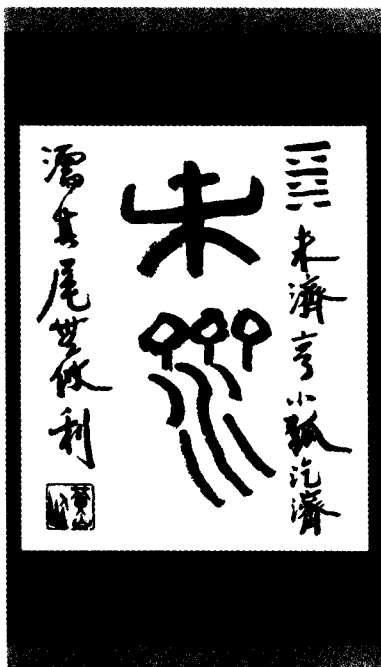 ䷿未濟亨小狐汔濟
未濟
濡其尾無攸利